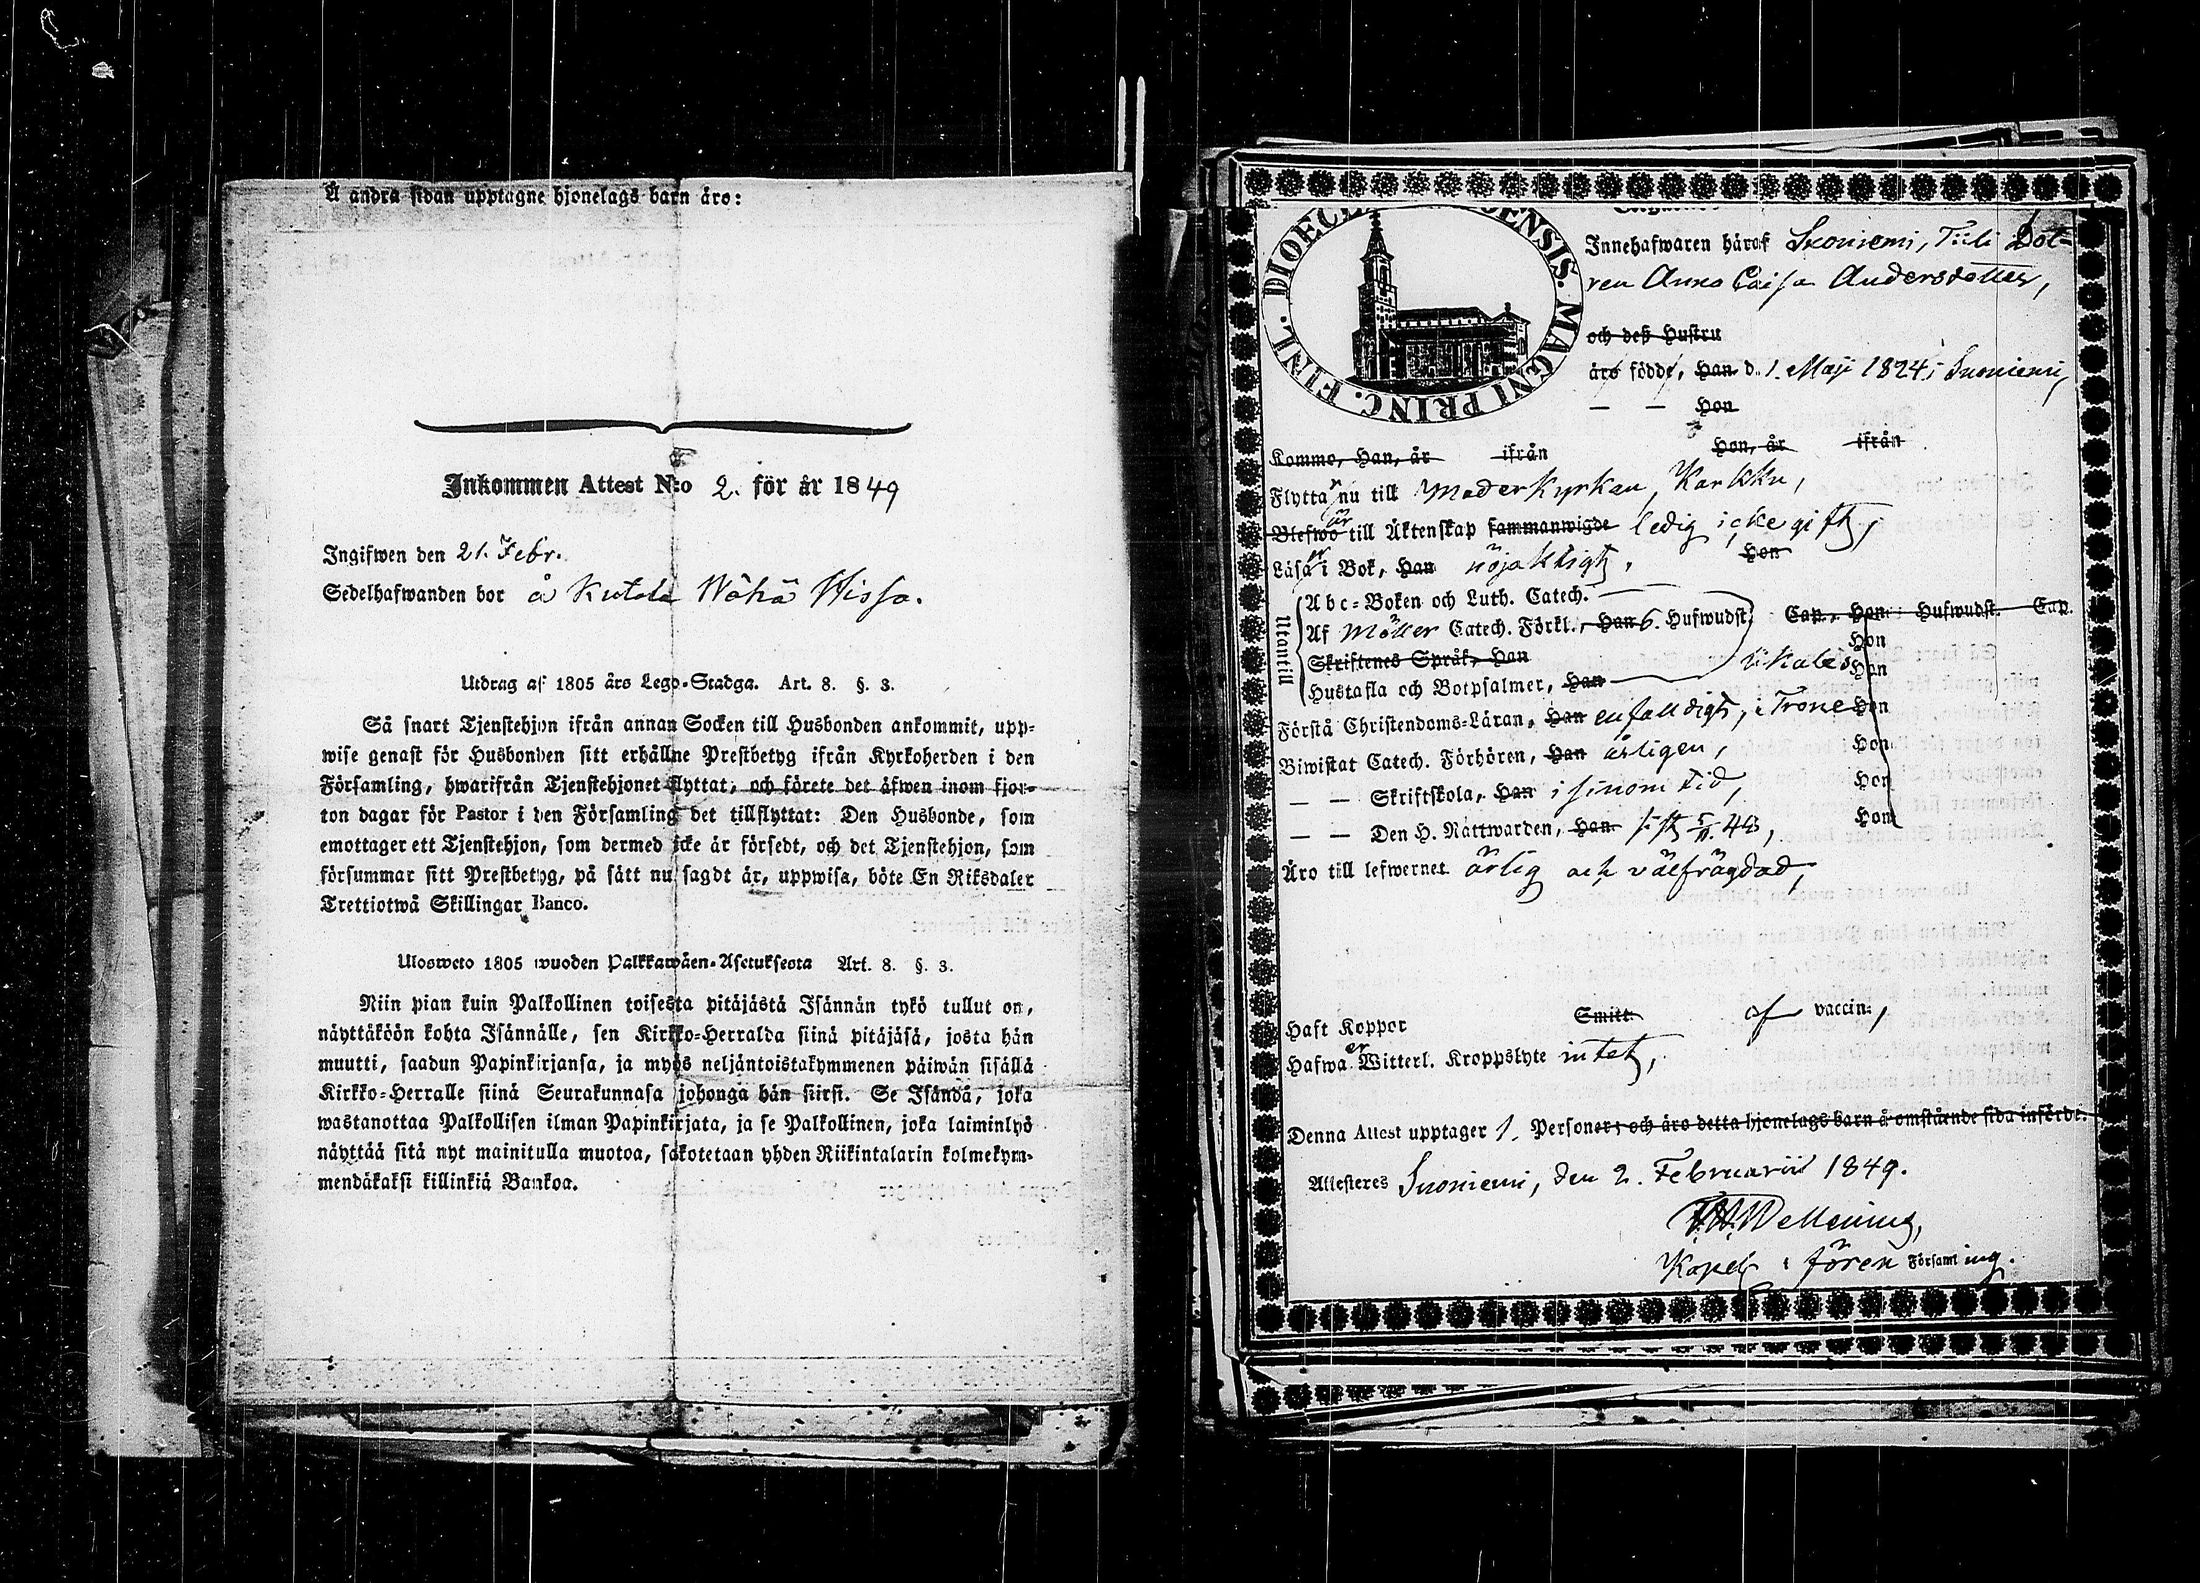 Å andra sidan upptagne hjonelags barn äro:
Inkommen Attest N:o 2. för år 1849
Ingifwen den 21. Febr.
Sedelhafwanden bor å Kutala Wähä Hissa.
Utdrag af 1805 års Lego-Stadga. Art. 8. §. 3.
Så snart Tjenstehjon ifrån annan Socken till Husbonden ankommit, upp-
wise genast för Husbonden sitt erhållne Prestbetyg ifrån Kyrkoherden i den
Församling, hwarifrån Tjenstehjonet flyttat, och förete det äfwen inom fjor-
ton dagar för Pastor i den Församling det tillflyttat: Den Husbonde, som
emottager ett Tjenstehjon, som dermed icke är försedt, och det Tjenstehjon, som
försummar sitt Prestbetyg, på sätt nu sagdt är, uppwisa, böte En Riksdaler
Trettiotwå Skillingar Banco.
Ulosweto 1805 wuoden Palkkawäen-Asetuksesta Art. 8. §. 3.
Niin pian kuin Palkollinen toisesta pitäjästä Isännän tykö tullut on,
näyttäköön kohta Isännälle, sen Kirkko-Herralda siinä pitäjäsä, josta hän
muutti, saadun Papinkirjansa, ja myös neljäntoistakymmenen päiwän sisällä
Kirkko-Herralle siinä Seurakunnasa johonga hän siirsi. Se Isändä, joka
wastanottaa Palkollisen ilman Papinkirjata, ja se Palkollinen, joka laiminlyö
näyttää sitä nyt mainitulla muotoa, sakotetaan yhden Riikintalarin kolmekym-
mendäkaksi killinkiä Bankoa.
DIOEC ENSIS. MAGNI PRINC. FINL.
Innehafwaren häraf Suoniemi, Tiili Dot-
ren Anna Caisa Andersdotter,
och deß Hustru
äro födde, Han d. 1. Maji 1824 i Suoniemi,
— — Hon
Kommo, Han, år ifrån Hon, år ifrån
Flyttar nu till Moderkyrkan, Karkku,
Blefwo är till Äktenskap sammanwigde ledig icke gift,
Läsa er i Bok, Han nöjaktigt, Hon
Utantill
Abc-Boken och Luth. Catech. —
Af Möller Catech. Förkl., Han 6. Hufwudst. Cap., Hon Hufwudst. Cap.
Skriftenes Språk, Han Hon
Hustafla och Botpsalmer, Han Hon
Förstå Christendoms-Läran, Han enfaldigt, Hon
Biwistat Catech. Förhören, Han årligen, Hon
— — Skriftskola, Han i sinom tid, Hon
— — Den H. Nattwarden, Han sist 5/11 48, Hon
Äro till lefwernet ärlig och välfrägdad,
Haft Koppor Smitt. af vaccin.,
Hafwa er Witterl. Kroppslyte intet,
Denna Attest upptager 1. Personer; och äro detta hjonelags barn å omstående sida införde.
Attesteres Suoniemi, den 2. Februarii 1849.
Kapel. i fören Församling.